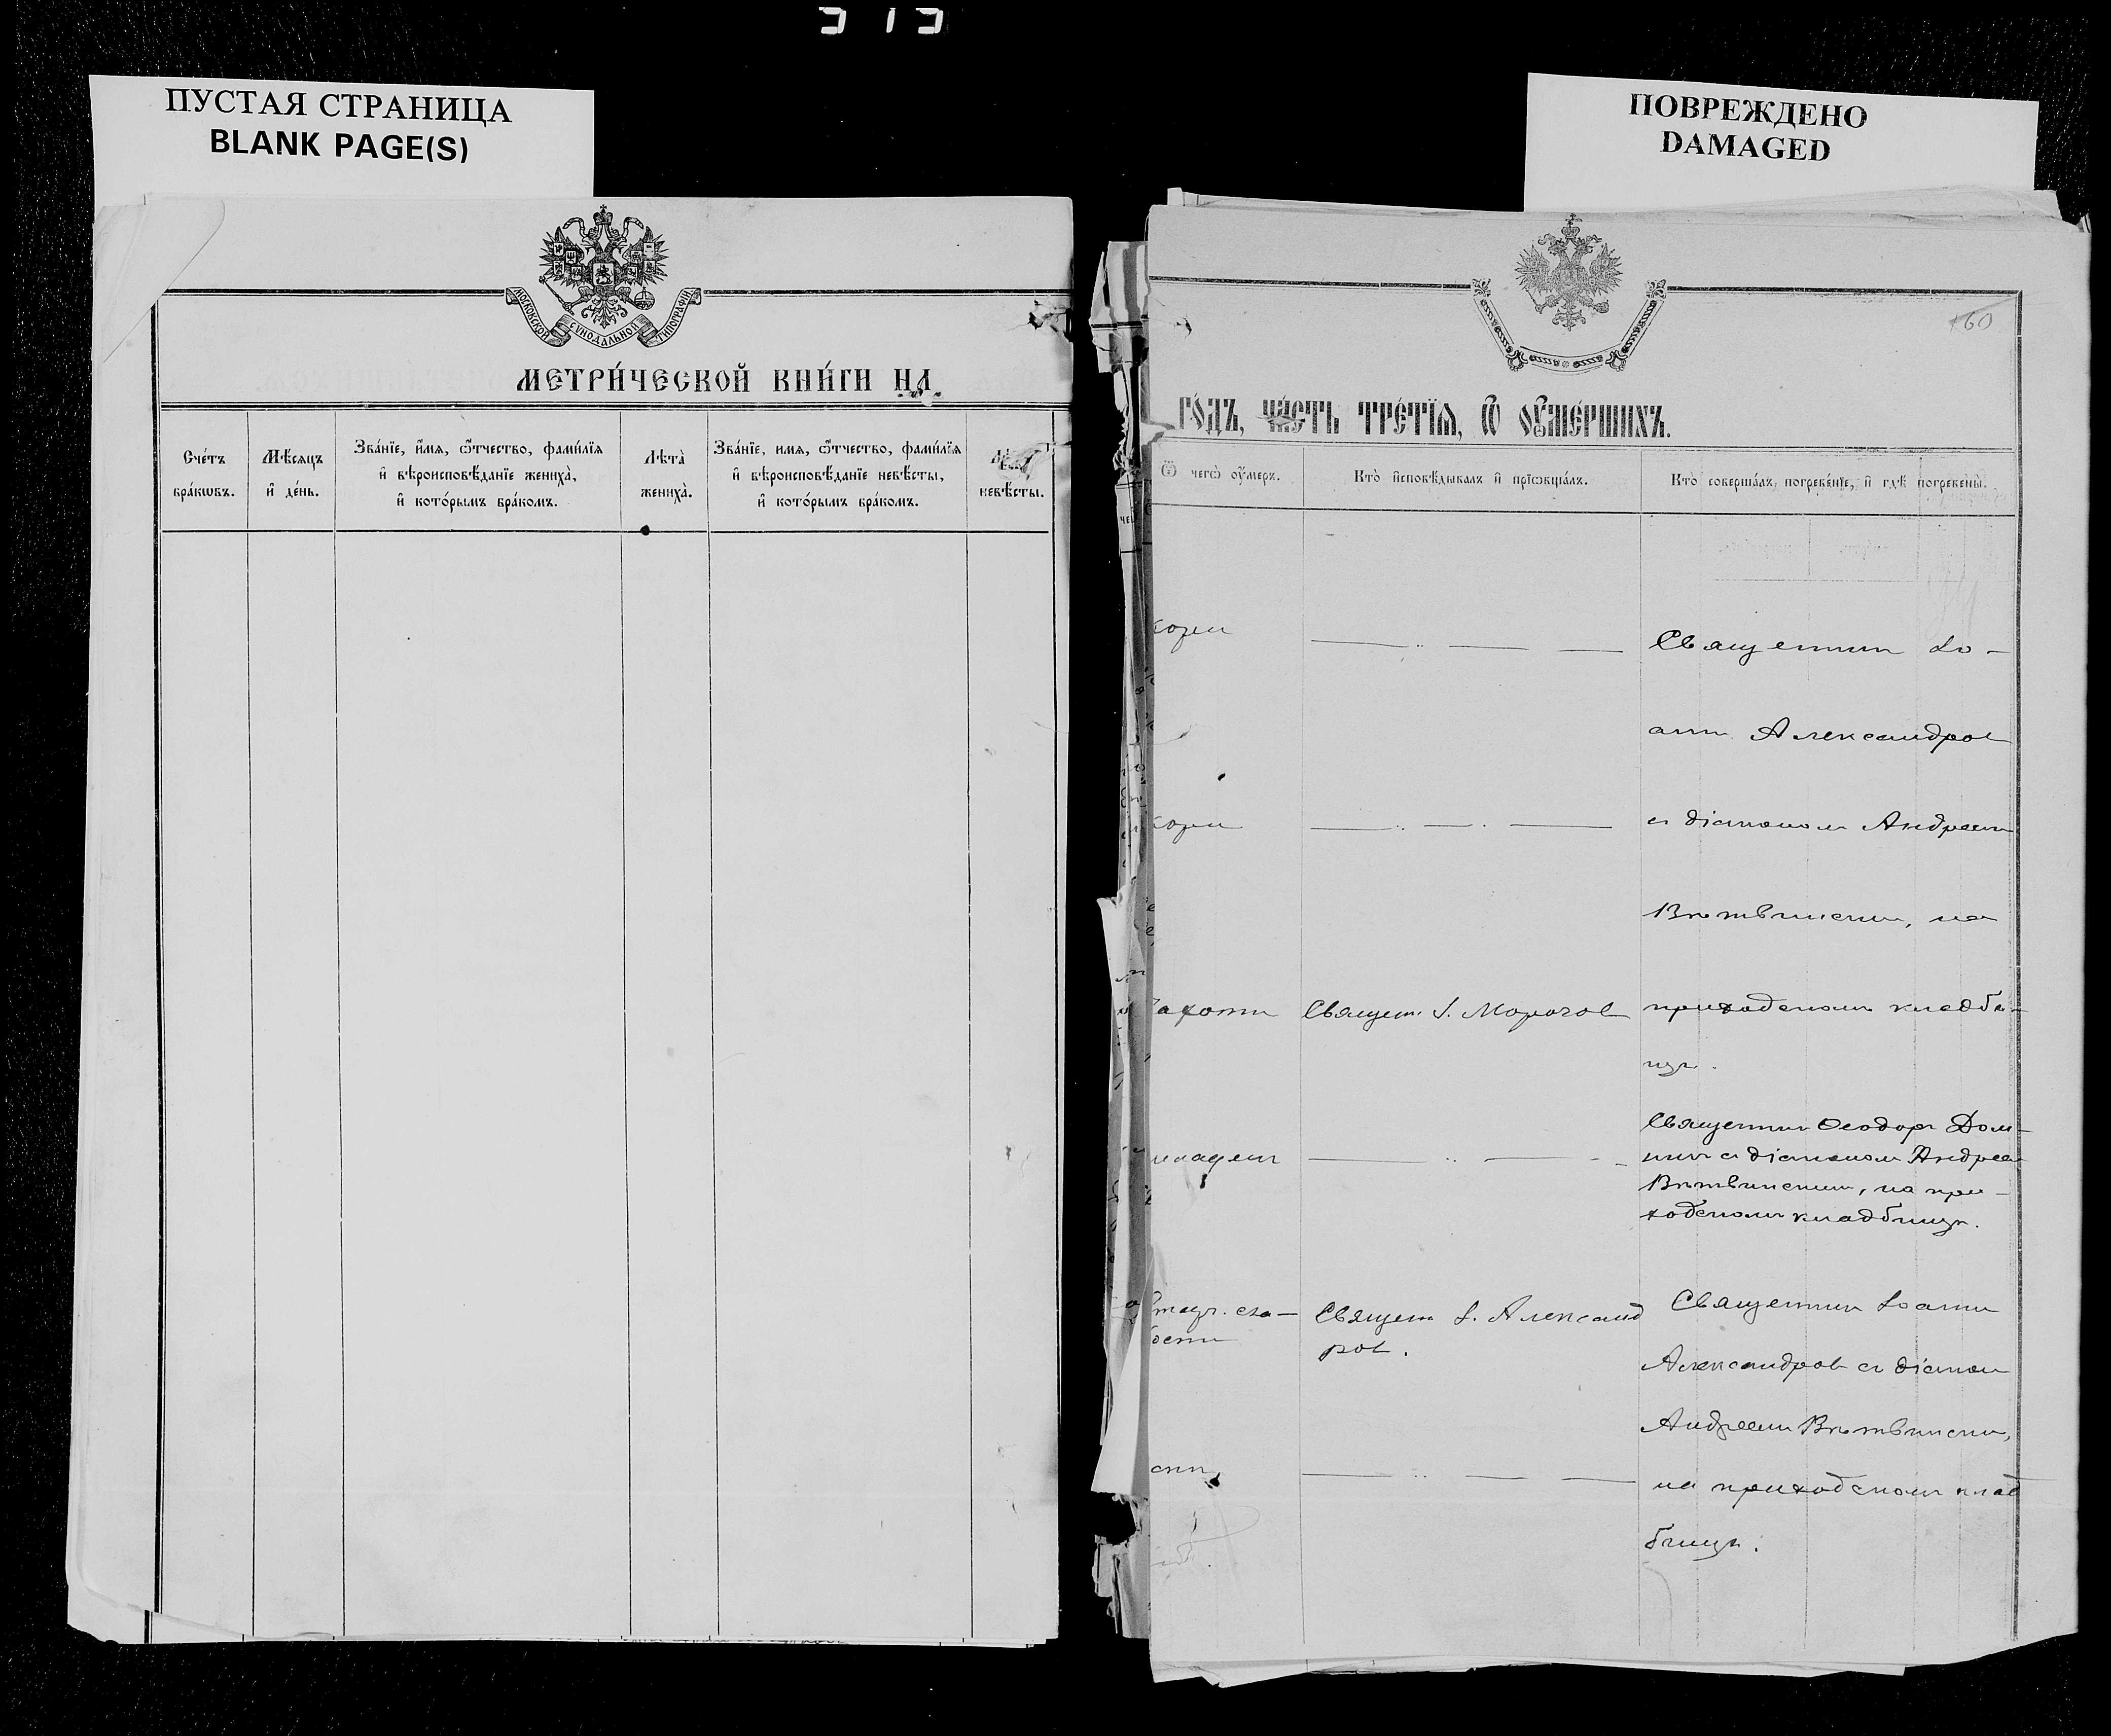 ПУСТАЯ СТРАНИЦА
BLANK PAGE(S)
МОСКОВСКОЙ СѴНОДАЛЬНОЙ ТИПОГРАФІИ
МЕТРИ́ЧЕСКОЙ КНИ́ГИ НА
Сче́тъ бра́кωвъ.
Мѣ́сяцъ и҆ де́нь.
Зва́нїе, и҆́мѧ, ѻ҆́тчество, фами́лїѧ
и҆ вѣроисповѣ́данїе жениха̀,
и҆ кото́рымъ бра́комъ.
Лѣта̀ жениха̀.
Зва́нїе, имѧ, ѻ҆́тчество, фами́лїѧ
и҆ вѣроисповѣ́данїе невѣ́сты,
и҆ кото́рымъ бра́комъ.
невѣ́сты.
ПОВРЕЖДЕНО
DAMAGED
160
ГО́ДЪ, ЧА́СТЬ ТРЕ́ТЇѦ, Ѽ ОУ҆МЕ́РШИХЪ.
Ѿ чегѡ̀ оу҆́меръ.
Кто̀ и҆сповѣ́дывалъ и҆ прїѡбща́лъ.
Кто̀ соверша́лъ погребе́нїе, и҆ гдѣ̀ погребены̀.
кори
Священник Іо-
анн Александров
кори
с діаконом Андреем
Вѣтвинским, на
Священ. І. Морозов
приходском кладби-
щѣ.
Священник Ѳеодор Дом-
нин с діаконом Андреем
Вѣтвинским, на при-
ходском кладбищѣ.
Священ. І. Александ
ров.
Священник Іоанн
Александров с діакон
Андреем Вѣтвинским,
на приходском клад
бищѣ.